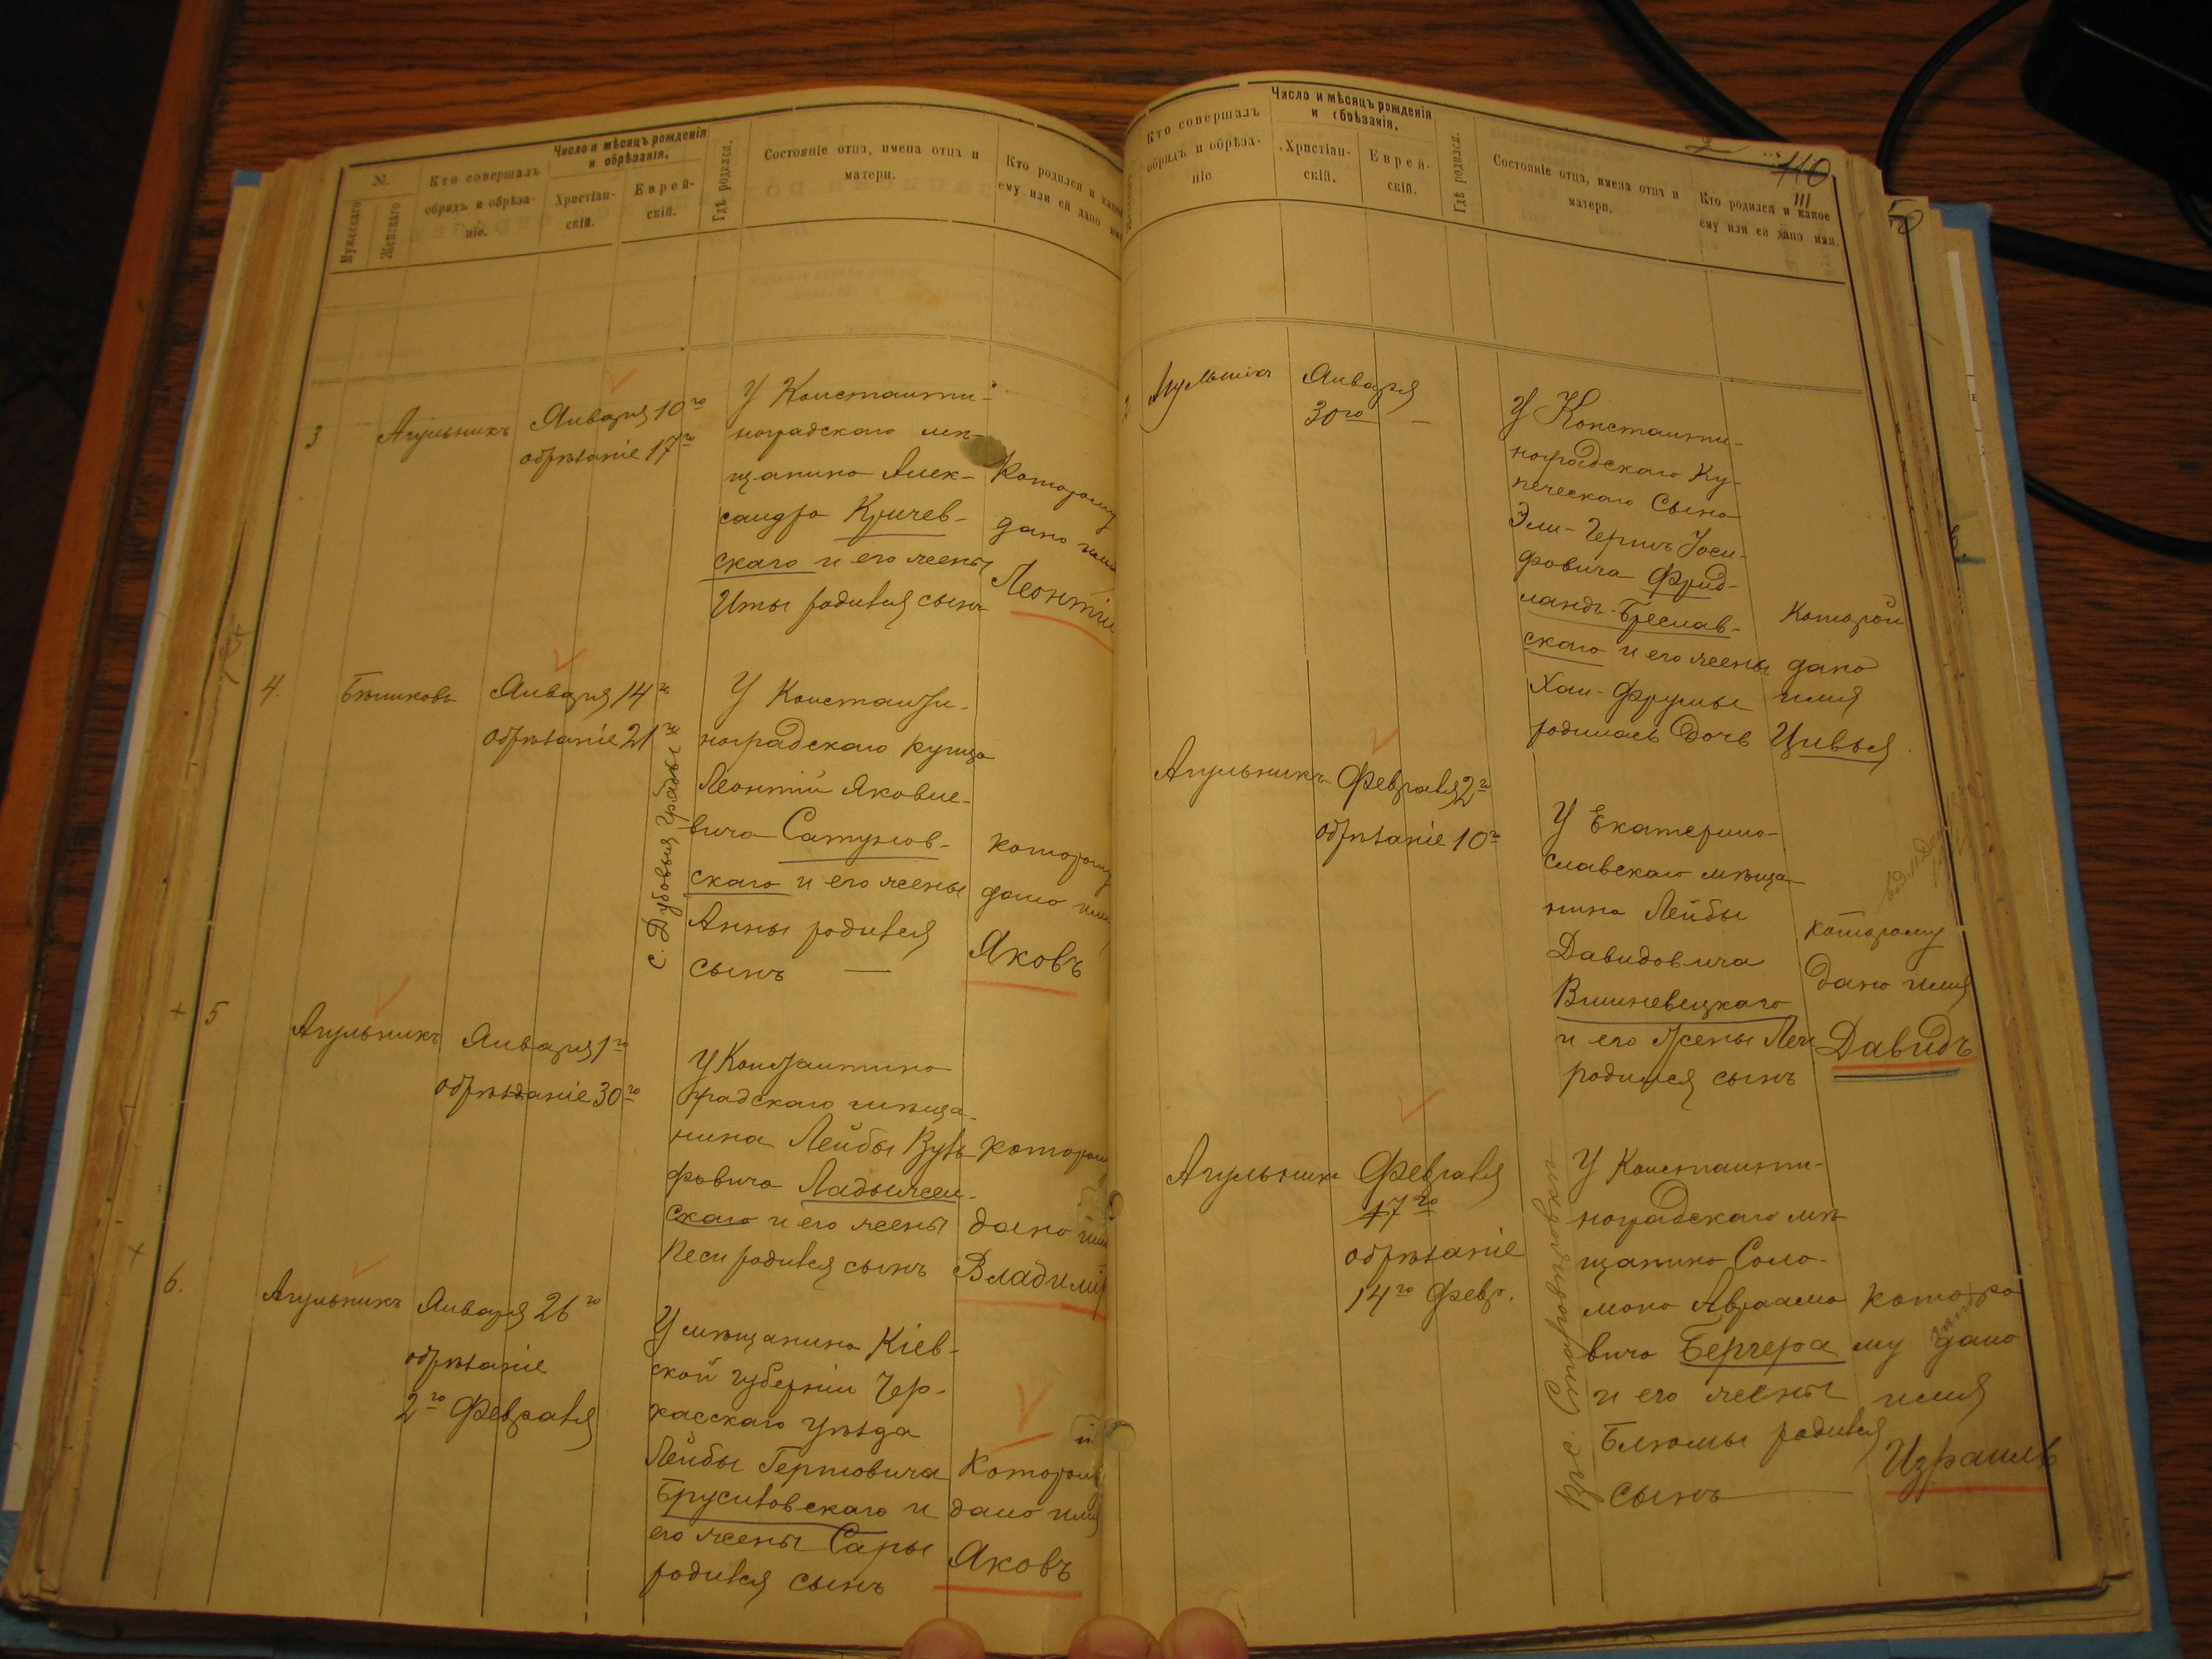 №.
Мужескаго
Женскаго
Кто совершалъ
обрядъ и обрѣза-
ніе.
Число и мѣсяцъ рожденія
и обрѣзанія.
Христіан-
скій.
Еврей-
скій.
Гдѣ родился.
Состояніе отца, имена отца и
матери.
Кто родился и какое
ему или ей дано имя
3
Агульникъ
Января 10го
обрѣзаніе 17го
У Константи-
ноградскаго мѣ-
щанина Алек-
сандра Кричев-
скаго и его жены
Иты родился сынъ
Которому
дано имя
Леонтій
4.
Бѣликовъ
Января 14го
обрѣзаніе 21го
с. Дубовыя Гряды
У Константи-
ноградскаго купца
Леонтій Яковле-
вича Сатунов-
скаго и его жены
Анны родился
сынъ —
которому
дано имя
Яковъ
5
Агульникъ
Января 1го
обрѣзаніе 30го
У Константино
градскаго мѣща-
нина Лейбы Вуль
фовича Ладыжен-
скаго и его жены
Песи родился сынъ
которому
дано имя
Владимір
6.
Агульникъ
Января 26го
обрѣзаніе
2го Февраля
У мѣщанина Кіев-
ской губерніи Чер-
касскаго уѣзда
Лейбы Гершовича
Брусиловскаго и
его жены Сары
родился сынъ
Которому
дано имя
Яковъ
Кто совершалъ
обрядъ и обрѣза-
ніе
Число и мѣсяцъ рожденія
и обрѣзанія.
Христіан-
скій.
Еврей-
скій.
Гдѣ родился.
Состояніе отца, имена отца и
матери.
Кто родился и какое
ему или ей дано имя.
110
111
50
Агульникъ
Января
30го —
У Константи-
ноградскаго Ку-
печескаго Сына
Эли-Гершъ Іоси-
фовича Фрид-
ландъ-Бреслав-
скаго и его жены
Хаи-Фрумы
родилась дочь
Которой
дано
имя
Цивья.
Агульникъ
Февраля 2го
обрѣзаніе 10го
У Екатерино-
славскаго мѣща-
нина Лейбы
Давидовича
Вишневецкаго
и его жены Леи
родился сынъ
которому
дано имя
Давидъ
Агульникъ
Февраля
17го
обрѣзаніе
14го Февр.
У Константи-
ноградскаго мѣ-
щанина Соло-
мона Авраамо
вича Бергера
и его жены
Блюмы родился
сынъ
которо
му дано
имя
Израиль